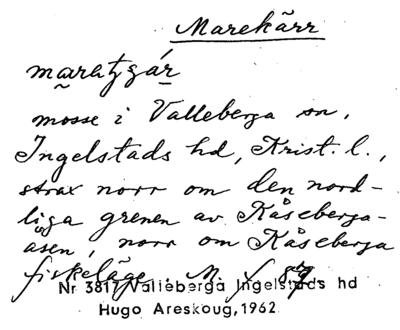 Marekärr
maratzgár
mosse i Valleberga sn,
Ingelstads hd, Krist. l.,
strax norr om den nord-
liga grenen av Kåseberga-
åsen, norr om Kåseberga
fiskeläge. M
Nr 3817 Valleberga Ingelstads hd
Hugo Areskoug, 1962